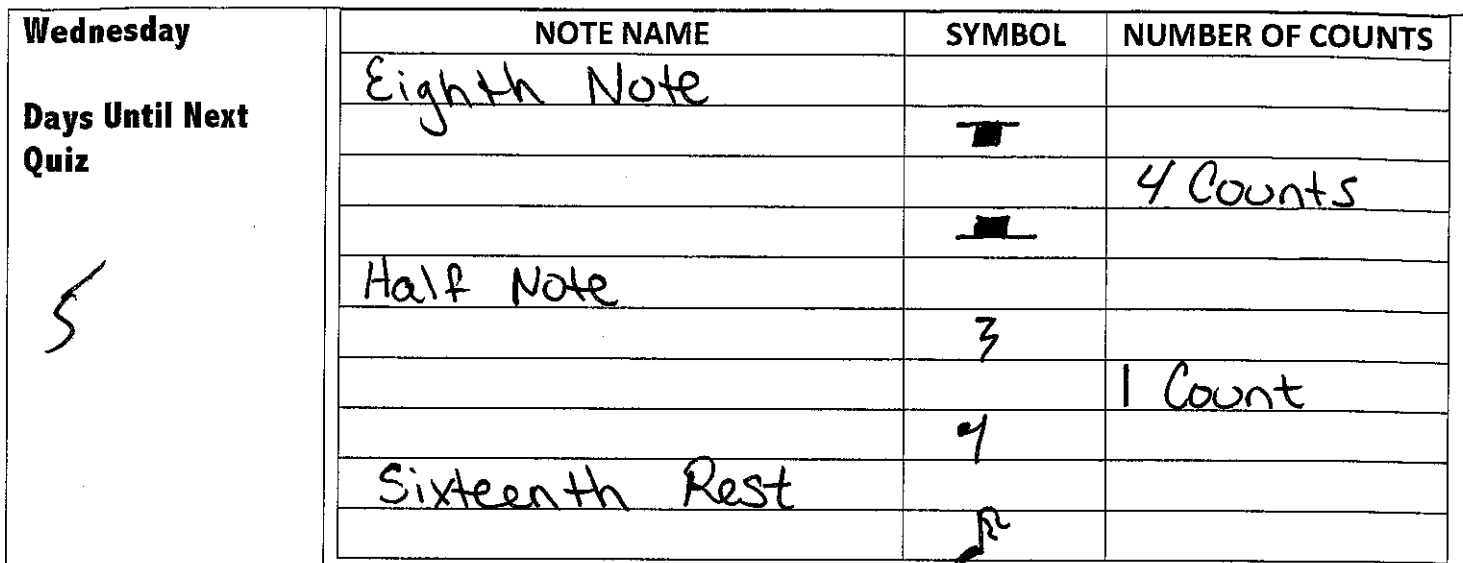 Wednesday
Days Until Next
Quiz
5
NOTE NAME SYMBOL NUMBER OF COUNTS
Eighth Note
4 Counts
Half Note
1 Count
Sixteenth Rest